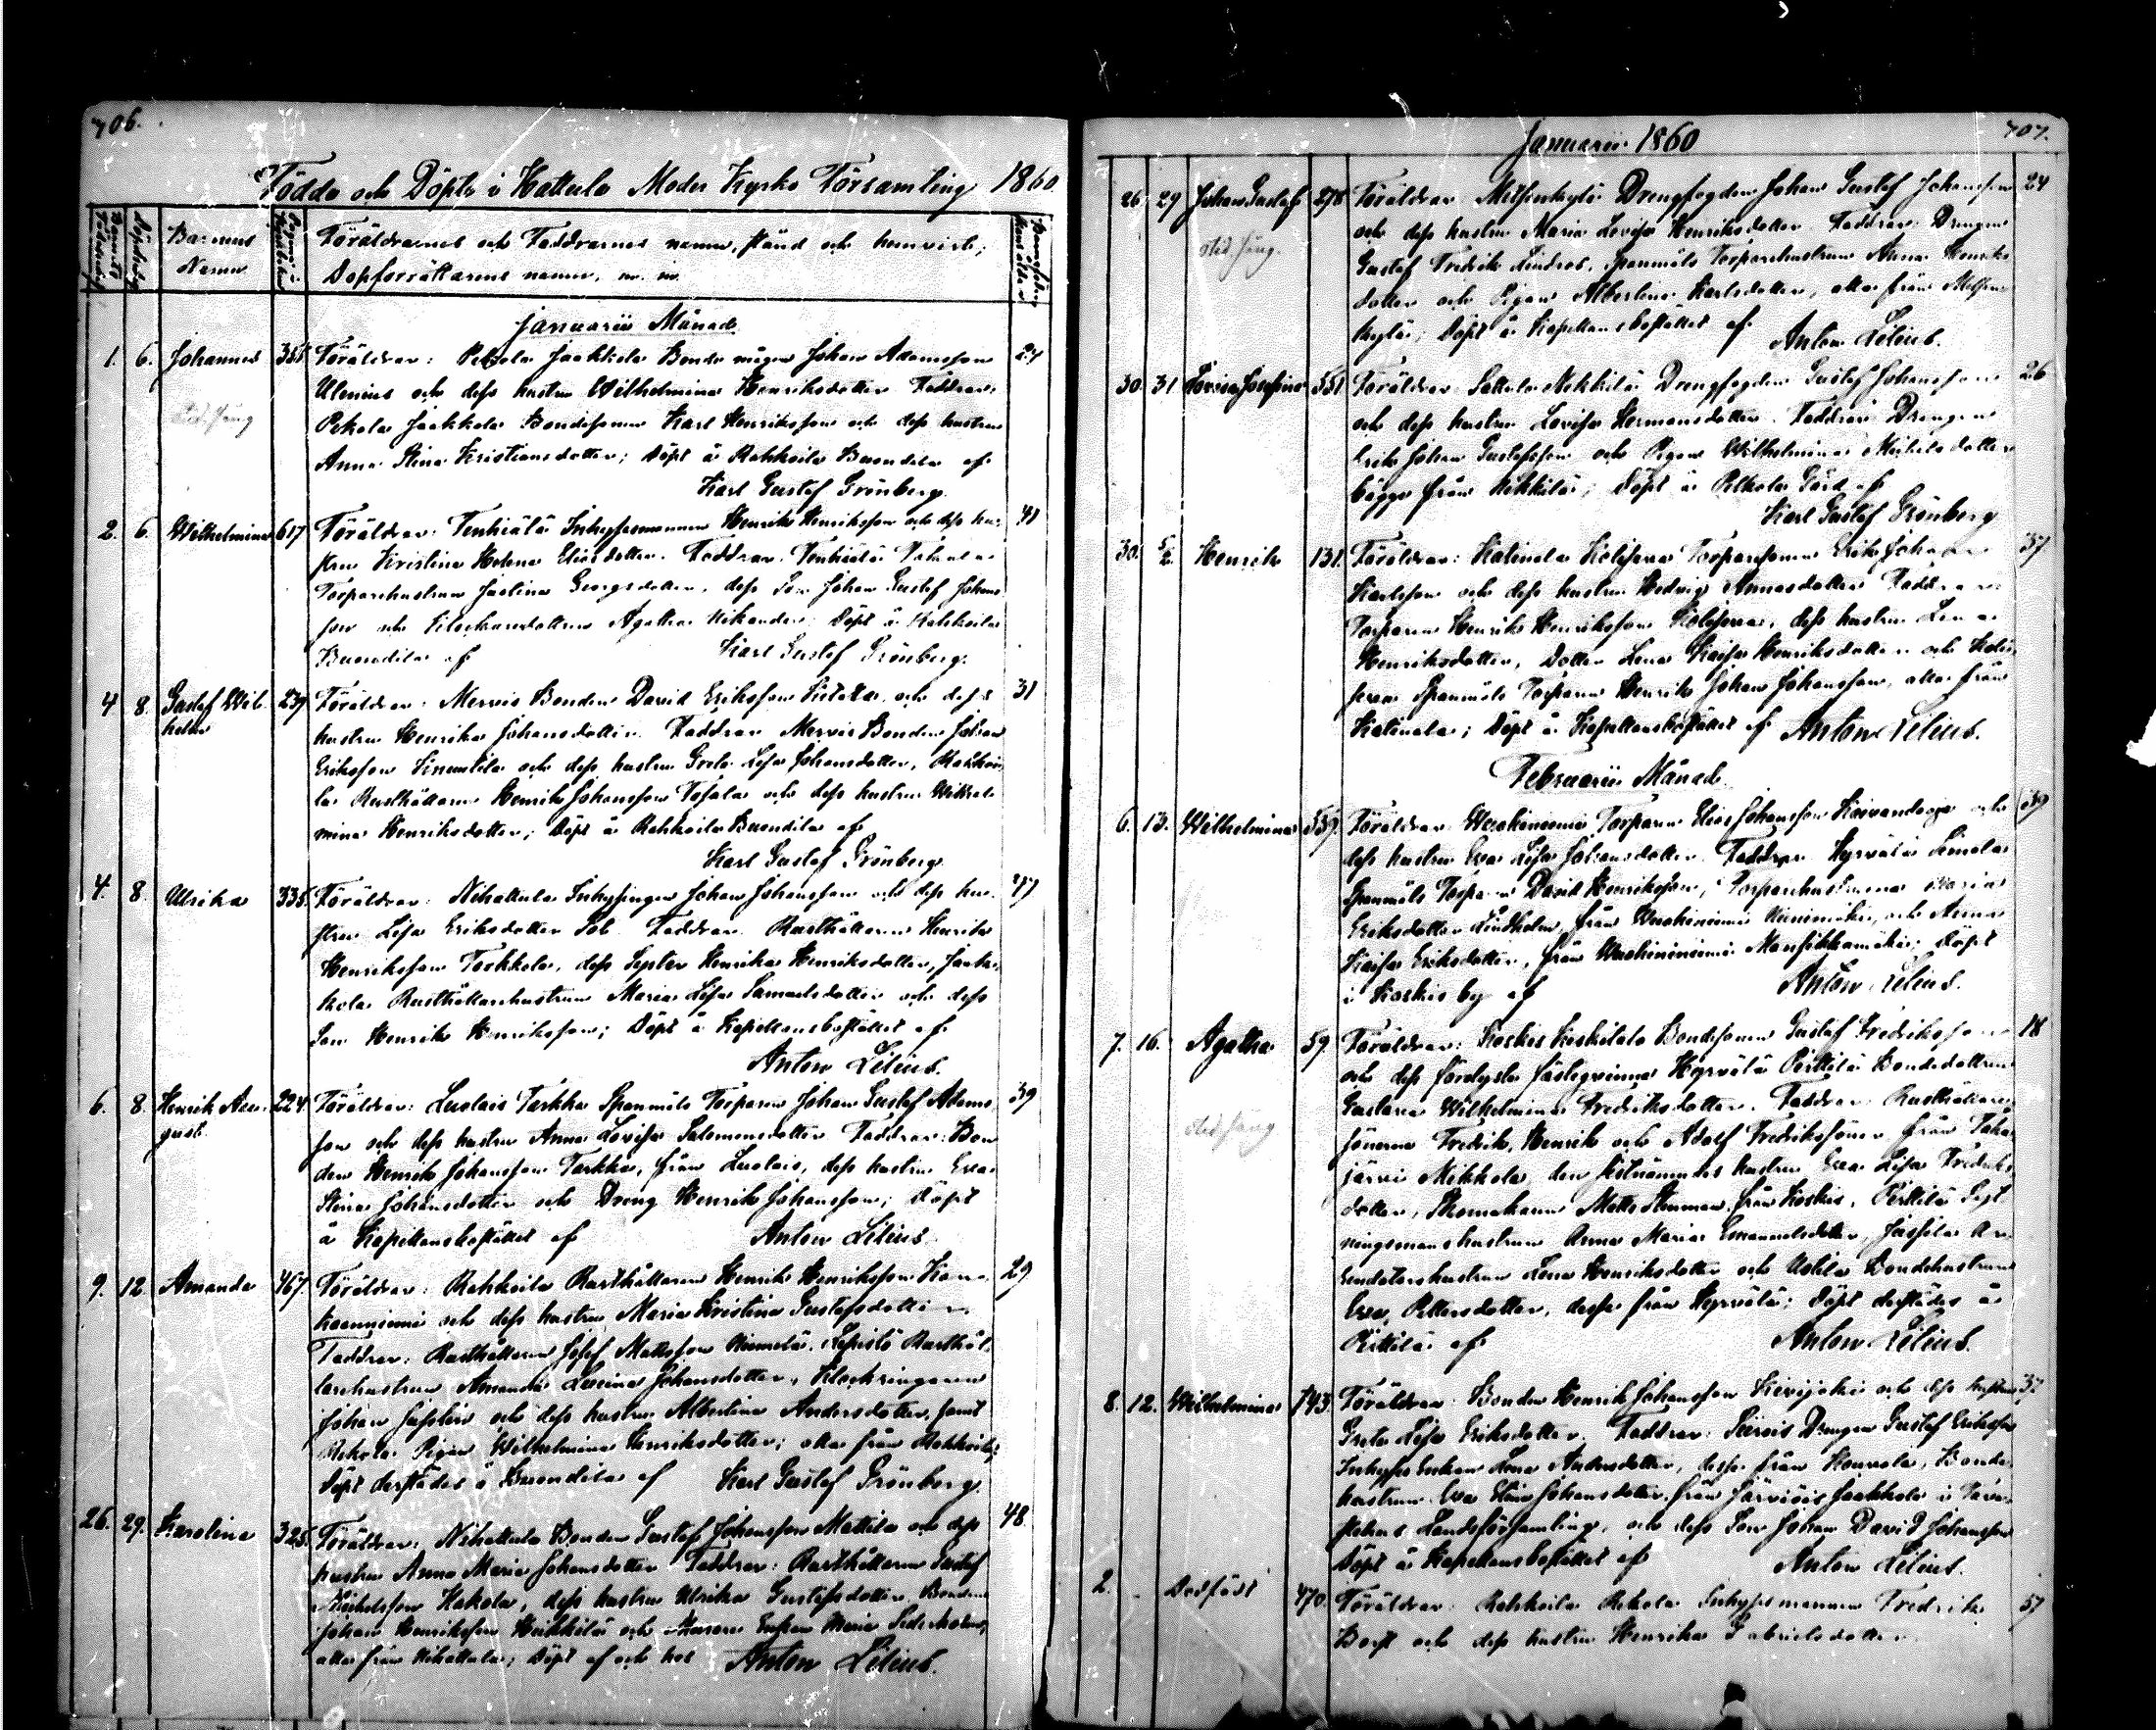 706.
Födde och Döpte i Hattula Moder Kyrko Församling 1860.
Barnens Namn
Föräldrarnes och Faddrarnes namn, stånd och hemvist;
Dopförrättarens namn, m. m.
Januarii Månad.
1. 6. Johannes 355. Föräldrar: Pekola Jaakkola Bonde mågen Johan Adamsson 24
Ulenius och dess hustru Wilhelmina Henriksdotter Faddrar:
Pekola Jaakkola Bondesonen Karl Henriksson och dess hustru
Anna Stina Kristiansdotter; Döpt å Rahkoila Buondila af
Karl Gustaf Grönberg.
2. 6. Wilhelmina 617 Föräldrar: Tenhiälä Inhysesmannen Henrik Henriksson och dess hu- 41
stru Kristina Helena Eliasdotter. Faddrar: Tenhiälä
Torparehustrun Justina Georgsdotter, dess Son Johan Gustaf Johans
son och Klockaredottren Agatha Nikander; Döpt å Rahkoila
Buondila af Karl Gustaf Grönberg.
4 8. Gustaf Wil- 239 Föräldrar: Mervis Bonden David Eriksson och dess 31
helm hustru Henrika Johansdotter. Faddrar Mervis Bonden Johan
Eriksson och dess hustru Greta Lisa Johansdotter, Rahkoi-
la Rusthållaren Henrik Johansson och dess hustru Wilhel-
mina Henriksdotter; Döpt å Rahkoila Buondila af
Karl Gustaf Grönberg.
4. 8. Ulrika 335. Föräldrar: Nihattula Inhysingen Johan Johansson och dess hu-
stru Lisa Eriksdotter Faddrar: Rusthållaren Henrik
Henriksson Torkkola, dess Syster Henrika Henriksdotter, Jaak-
kola Rusthållarehustrun Maria Lisa Samuelsdotter och dess
Son Henrik Henriksson; Döpt å Kapellansbostället af
Anton Lilius.
6. 8. Henrik Au- 224. Föräldrar: Luolais Tarkka Spanmåls Torparen Johan Gustaf Adams- 39
gust. son och dess hustru Anna Lovisa Salomonsdotter Faddrar: Bon
den Henrik Johansson Tarkka, från Luolais, dess hustru Eva
Stina Johansdotter och Dreng Henrik Johansson; Döpt
å Kapellansbostället af Anton Lilius.
9. 12 Amanda 467. Föräldrar: Rahkoila Rusthållaren Henrik Henriksson 29
och dess hustru Maria Kristina Gustafsdotter
Faddrar: Rusthållaren Josef Mattsson Lepistö Rusthål-
larehustrun Amanda Johansdotter, Klockringaren
Johan och dess hustru Albertina Andersdotter, samt
Rekola Pigan Wilhelmina Henriksdotter; alla från Rahkoila;
Döpt derstädes å Buondila af Karl Gustaf Grönberg.
26. 29. Karolina 325. Föräldrar: Nihattula Bonden Gustaf Johansson Mattila och dess 48
hustru Anna Maria Johansdotter Faddrar: Rusthållaren Gustaf
Michelsson Hakola, dess hustru Ulrika Gustafsdotter, Bonden
Johan Henriksson Heikkilä och Enkan Maria Sederholm,
alla från Nihattula; Döpt af och hos Anton Lilius.
Januarii 1860 707.
26. 29 Johan Gustaf 278 Föräldrar: Drengfogden Johan Gustaf Johansson 24
och dess hustru Maria Lovisa Henriksdotter Faddrar: Drengen
Gustaf Fredrik Lindros, Spanmåls Torparehustrun Anna Henriks
dotter och Pigan Albertina Karlsdotter, alla från
Döpt å Kapellansbostället af Anton Lilius.
30. 31. Lovisa Josefina 551 Föräldrar: Sattula Nikkilä Drengfogden Gustaf Johansson 26
och dess hustru Lovisa Hermansdotter. Faddrar: Drengen
Erik Johan Gustafsson och Pigan Wilhelmina Michelsdotter
bägge från Nikkilä; Döpt å Pelkola Gård af
Karl Gustaf Grönberg
30. 5/2. Henrik 131. Föräldrar: Katinala Torparesonen Erik Johan 37
Karlsson och dess hustru Hedvig Annasdotter Faddrar:
Torparen Henrik Henriksson dess hustru Lena
Henriksdotter, Dotter Lena Kaisa Henriksdotter och
Spanmåls Torparen Henrik Johan Johansson, alla från
Katinala; Döpt å Kapellansbostället af Anton Lilius.
Februarii Månad.
6. 13. Wilhelmina 559. Föräldrar: Torparen Elias Johansson Kaivandoja och 39
dess hustru Eva Lisa Johansdotter. Faddrar: Hyrvälä Simola
Spanmåls Torparen David Henriksson, Torparehustrurna Maria
Eriksdotter Lindholm, från och Anna
Kaisa Eriksdotter, från Mansikkamäki; Döpt
i Koskis by af Anton Lilius.
7. 16. Agatha 59. Föräldrar: Koskis Keskitalo Bondesonen Gustaf Fredriksson 18
och dess fästeqvinna Hyrvälä Perttilä Bondedottren
Gustava Wilhelmina Fredriksdotter. Faddrar: Rusthållare
sönerna Fredrik, Henrik och Adolf Fredrikssöner från Taka
järvi Mikkola, den hustru Eva Lisa Fredriks-
dotter, från Koskis, Perttilä
hustrun Anna Maria Emanuelsdotter, Jussila Ar-
rendatorshustrun Lena Henriksdotter och Uotila Bondehustrun
Eva Pettersdotter, desse från Hyrvälä; Döpt derstädes å
Perttilä af Anton Lilius.
8. 12. Wilhelmina 143 Föräldrar: Bonden Henrik Johansson Kivijoki och dess hustru 37
Greta Lisa Eriksdotter. Faddrar: Drengen Gustaf Eriksson
Inhyses Enkan Lena Andersdotter, desse från Bonde
hustrun Eva Stina Johansdotter från Järviöis Jaakkola i Tava-
stehus Landsförsamling, och dess Son Johan David Johansson
Döpt å Kapellansbostället af Anton Lilius.
2. - Dödfödt 470 Föräldrar: Rahkoila Rekola Inhysesmannen Fredrik 37
och dess hustru Henrika Gabrielsdotter.